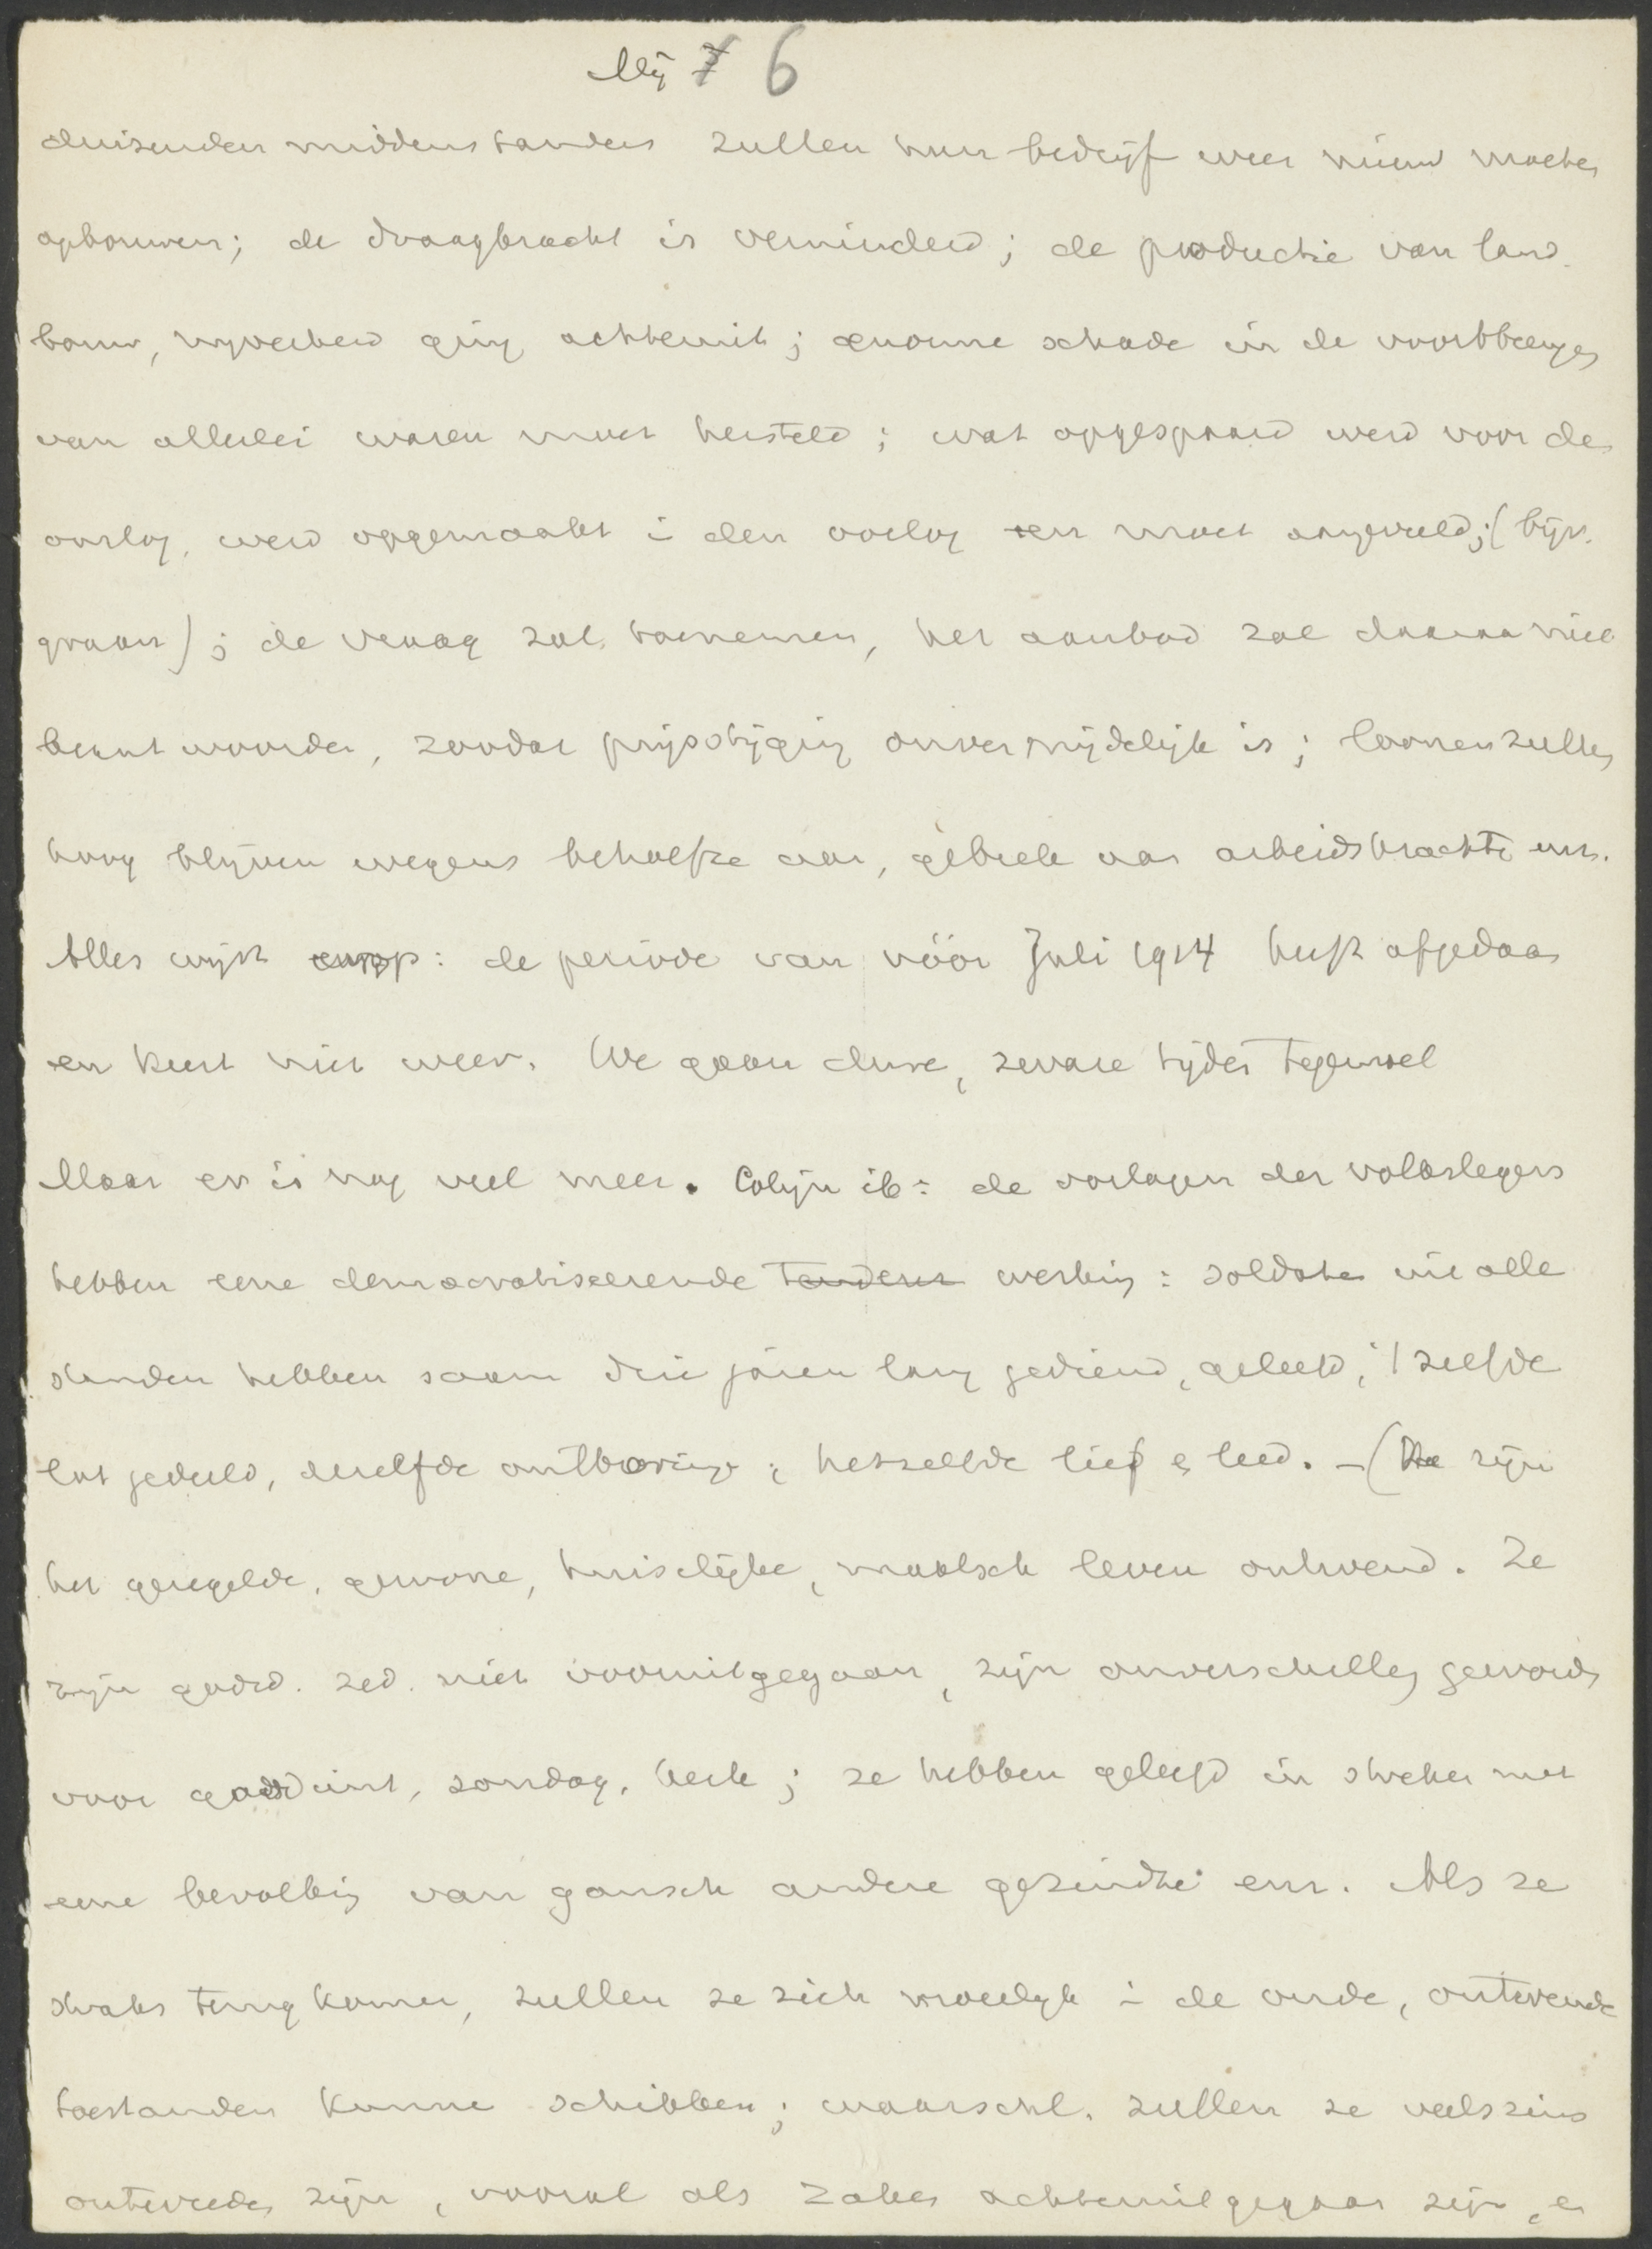 Mij 7 6
duizenden middenstanders zullen hun bedrijf weer nieuw moeten
opbouwen; de draagkracht is verminderd; de productie van land-
bouw, nijverheid ging achteruit; enorme schade in de voortbrengs
van allerlei waren moet hersteld; wat opgespaard werd voor den
oorlog, werd opgemaakt i den oorlog en moet aangevuld; (bijv.
graan); de vraag zal toenemen, het aanbod zal daaraan niet
beantwoorden, zoodat prijsstijging onvermijdelijk is; loonen zullen
hoog blijven wegens behoefte aan, gebrek aan arbeidskrachte enz.
Alles wijst erop: de periode van vóór Juli 1914 heeft afgedaan
en keert niet weer. We gaan dure, zware tijden tegemoet
Maar er is nog veel meer. Colijn ib: de oorlogen der volkslegers
hebben eene democratiseerende tendens werking: soldaten uit alle
standen hebben saam drie jaren lang gediend, geleefd, 't zelfde
lot gedeeld, dezelfde ontberingen; hetzelfde lief en leed. – (Ze zijn
het geregelde, gewone, huiselijke, maatsch leven ontwend. Ze
zijn godsd. zed. niet vooruitgegaan, zijn onverschillig geworden
voor godsdienst, zondag, kerk; ze hebben geleefd in streken met
eene bevolking van gansch andere gezindhei enz. Als ze
straks terugkomen, zullen ze zich moeilijk i de oude, ontwende
toestanden kunne schikken; waarschl. zullen ze veelszins
ontevreden zijn, vooral als zaken achteruitgegaan zijn, en